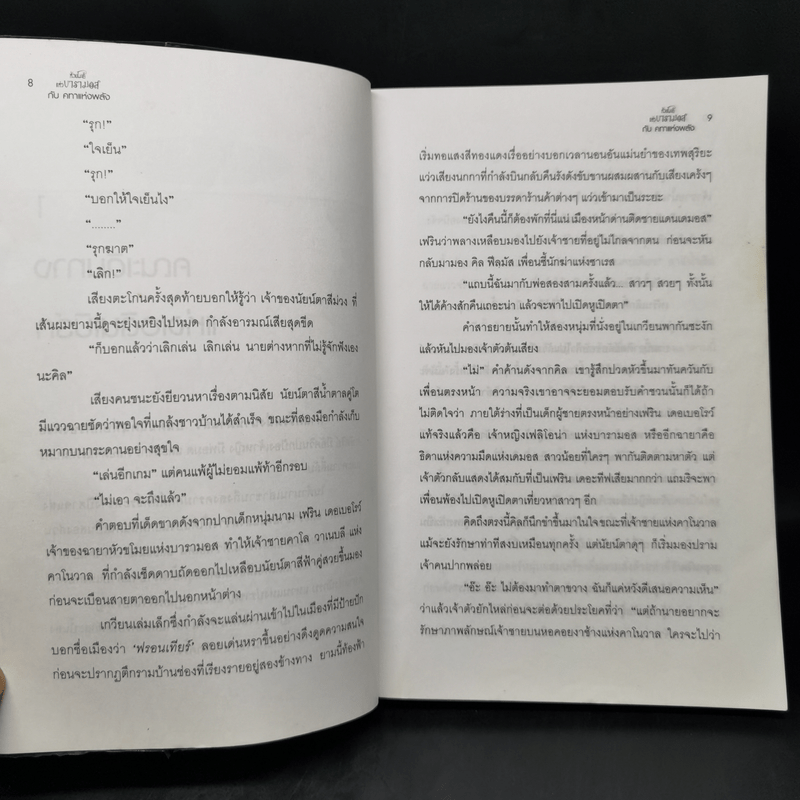 8
หัวขโมย
แห่งบารามอส
กับ คทาแห่งพลัง
“รุก!”
“ใจเย็น”
“รุก!”
“บอกให้ใจเย็นไง”
“........”
“รุกฆาต”
“เลิก!”
เสียงตะโกนครั้งสุดท้ายบอกให้รู้ว่า เจ้าของนัยน์ตาสีม่วง ที่
เส้นผมยามนี้ดูจะยุ่งเหยิงไปหมด กำลังอารมณ์เสียสุดขีด
“ก็บอกแล้วว่าเลิกเล่น เลิกเล่น นายต่างหากที่ไม่รู้จักฟังเอง
นะคิล”
เสียงคนชนะยังยียวนหาเรื่องตามนิสัย นัยน์ตาสีน้ำตาลคู่โต
มีแววฉายชัดว่าพอใจที่แกล้งชาวบ้านได้สำเร็จ ขณะที่สองมือกำลังเก็บ
หมากบนกระดานอย่างสุขใจ
“เล่นอีกเกม” แต่คนแพ้ผู้ไม่ยอมแพ้ท้าอีกรอบ
“ไม่เอา จะถึงแล้ว”
คำตอบที่เด็ดขาดดังจากปากเด็กหนุ่มนาม เฟริน เดอเบอโรว์
เจ้าของฉายาหัวขโมยแห่งบารามอส ทำให้เจ้าชายคาโล วาเนบลี แห่ง
คาโนวาล ที่กำลังเช็ดดาบถัดออกไปเหลือบนัยน์ตาสีฟ้าคู่สวยขึ้นมอง
ก่อนจะเบือนสายตาออกไปนอกหน้าต่าง
เกวียนเล่มเล็กซึ่งกำลังจะแล่นผ่านเข้าไปในเมืองที่มีป้ายปัก
บอกชื่อเมืองว่า ‘ฟรอนเทียร์’ ลอยเด่นหราขึ้นอย่างดึงดูดความสนใจ
ก่อนจะปรากฏตึกรามบ้านช่องที่เรียงรายอยู่สองข้างทาง ยามนี้ท้องฟ้า
หัวขโมย
แห่งบารามอส
กับ คทาแห่งพลัง
9
เริ่มทอแสงสีทองแดงเรื่ออย่างบอกเวลานอนอันแม่นยำของเทพสุริยะ
แว่วเสียงนกกาที่กำลังบินกลับคืนรังดังขับขานผสมผสานกับเสียงเครั้งๆ
จากการปิดร้านของบรรดาร้านค้าต่างๆ แว่วเข้ามาเป็นระยะ
“ยังไงคืนนี้ก็ต้องพักที่นี่แน่ เมืองหน้าด่านติดชายแดนเดมอส”
เฟรินว่าพลางเหลือบมองไปยังเจ้าชายที่อยู่ไม่ไกลจากตน ก่อนจะหัน
กลับมามอง คิล ฟีลมัส เพื่อนซี้นักฆ่าแห่งซาเรส
“แถบนี้ฉันมากับพ่อสองสามครั้งแล้ว... สาวๆ สวยๆ ทั้งนั้น
ให้ได้ค้างสักคืนเถอะน่า แล้วจะพาไปเปิดหูเปิดตา”
คำสาธยายนั้นทำให้สองหนุ่มที่นั่งอยู่ในเกวียนพากันชะงัก
แล้วหันไปมองเจ้าตัวต้นเสียง
“ไม่” คำค้านดังจากคิล เขารู้สึกปวดหัวขึ้นมาทันควันกับ
เพื่อนตรงหน้า ความจริงเขาอาจจะยอมตอบรับคำชวนนั้นก็ได้ถ้า
ไม่ติดใจว่า ภายใต้ร่างที่เป็นเด็กผู้ชายตรงหน้าอย่างเฟริน เดอเบอโรว์
แท้จริงแล้วคือ เจ้าหญิงเฟลิโอน่า แห่งบารามอส หรืออีกฉายาคือ
ธิดาแห่งความมืดแห่งเดมอส สาวน้อยที่ใครๆ พากันติดตามหาตัว แต่
เจ้าตัวกลับแสดงได้สมกับที่เป็นเฟริน เดอะทีฟเสียมากกว่า แถมริจะพา
เพื่อนพ้องไปเปิดหูเปิดตาเที่ยวหาสาวๆ อีก
คิดถึงตรงนี้คิลก็นึกขำขึ้นมาในใจขณะที่เจ้าชายแห่งคาโนวาล
แม้จะยังรักษาท่าทีสงบเหมือนทุกครั้ง แต่นัยน์ตาดุๆ ก็เริ่มมองปราม
เจ้าคนปากพล่อย
“อ๊ะ อ๊ะ ไม่ต้องมาทำตาขวาง ฉันก็แค่หวังดีเสนอความเห็น”
ว่าแล้วเจ้าตัวยักไหล่ก่อนจะต่อด้วยประโยคที่ว่า “แต่ถ้านายอยากจะ
รักษาภาพลักษณ์เจ้าชายบนหอคอยงาช้างแห่งคาโนวาล ใครจะไปว่า